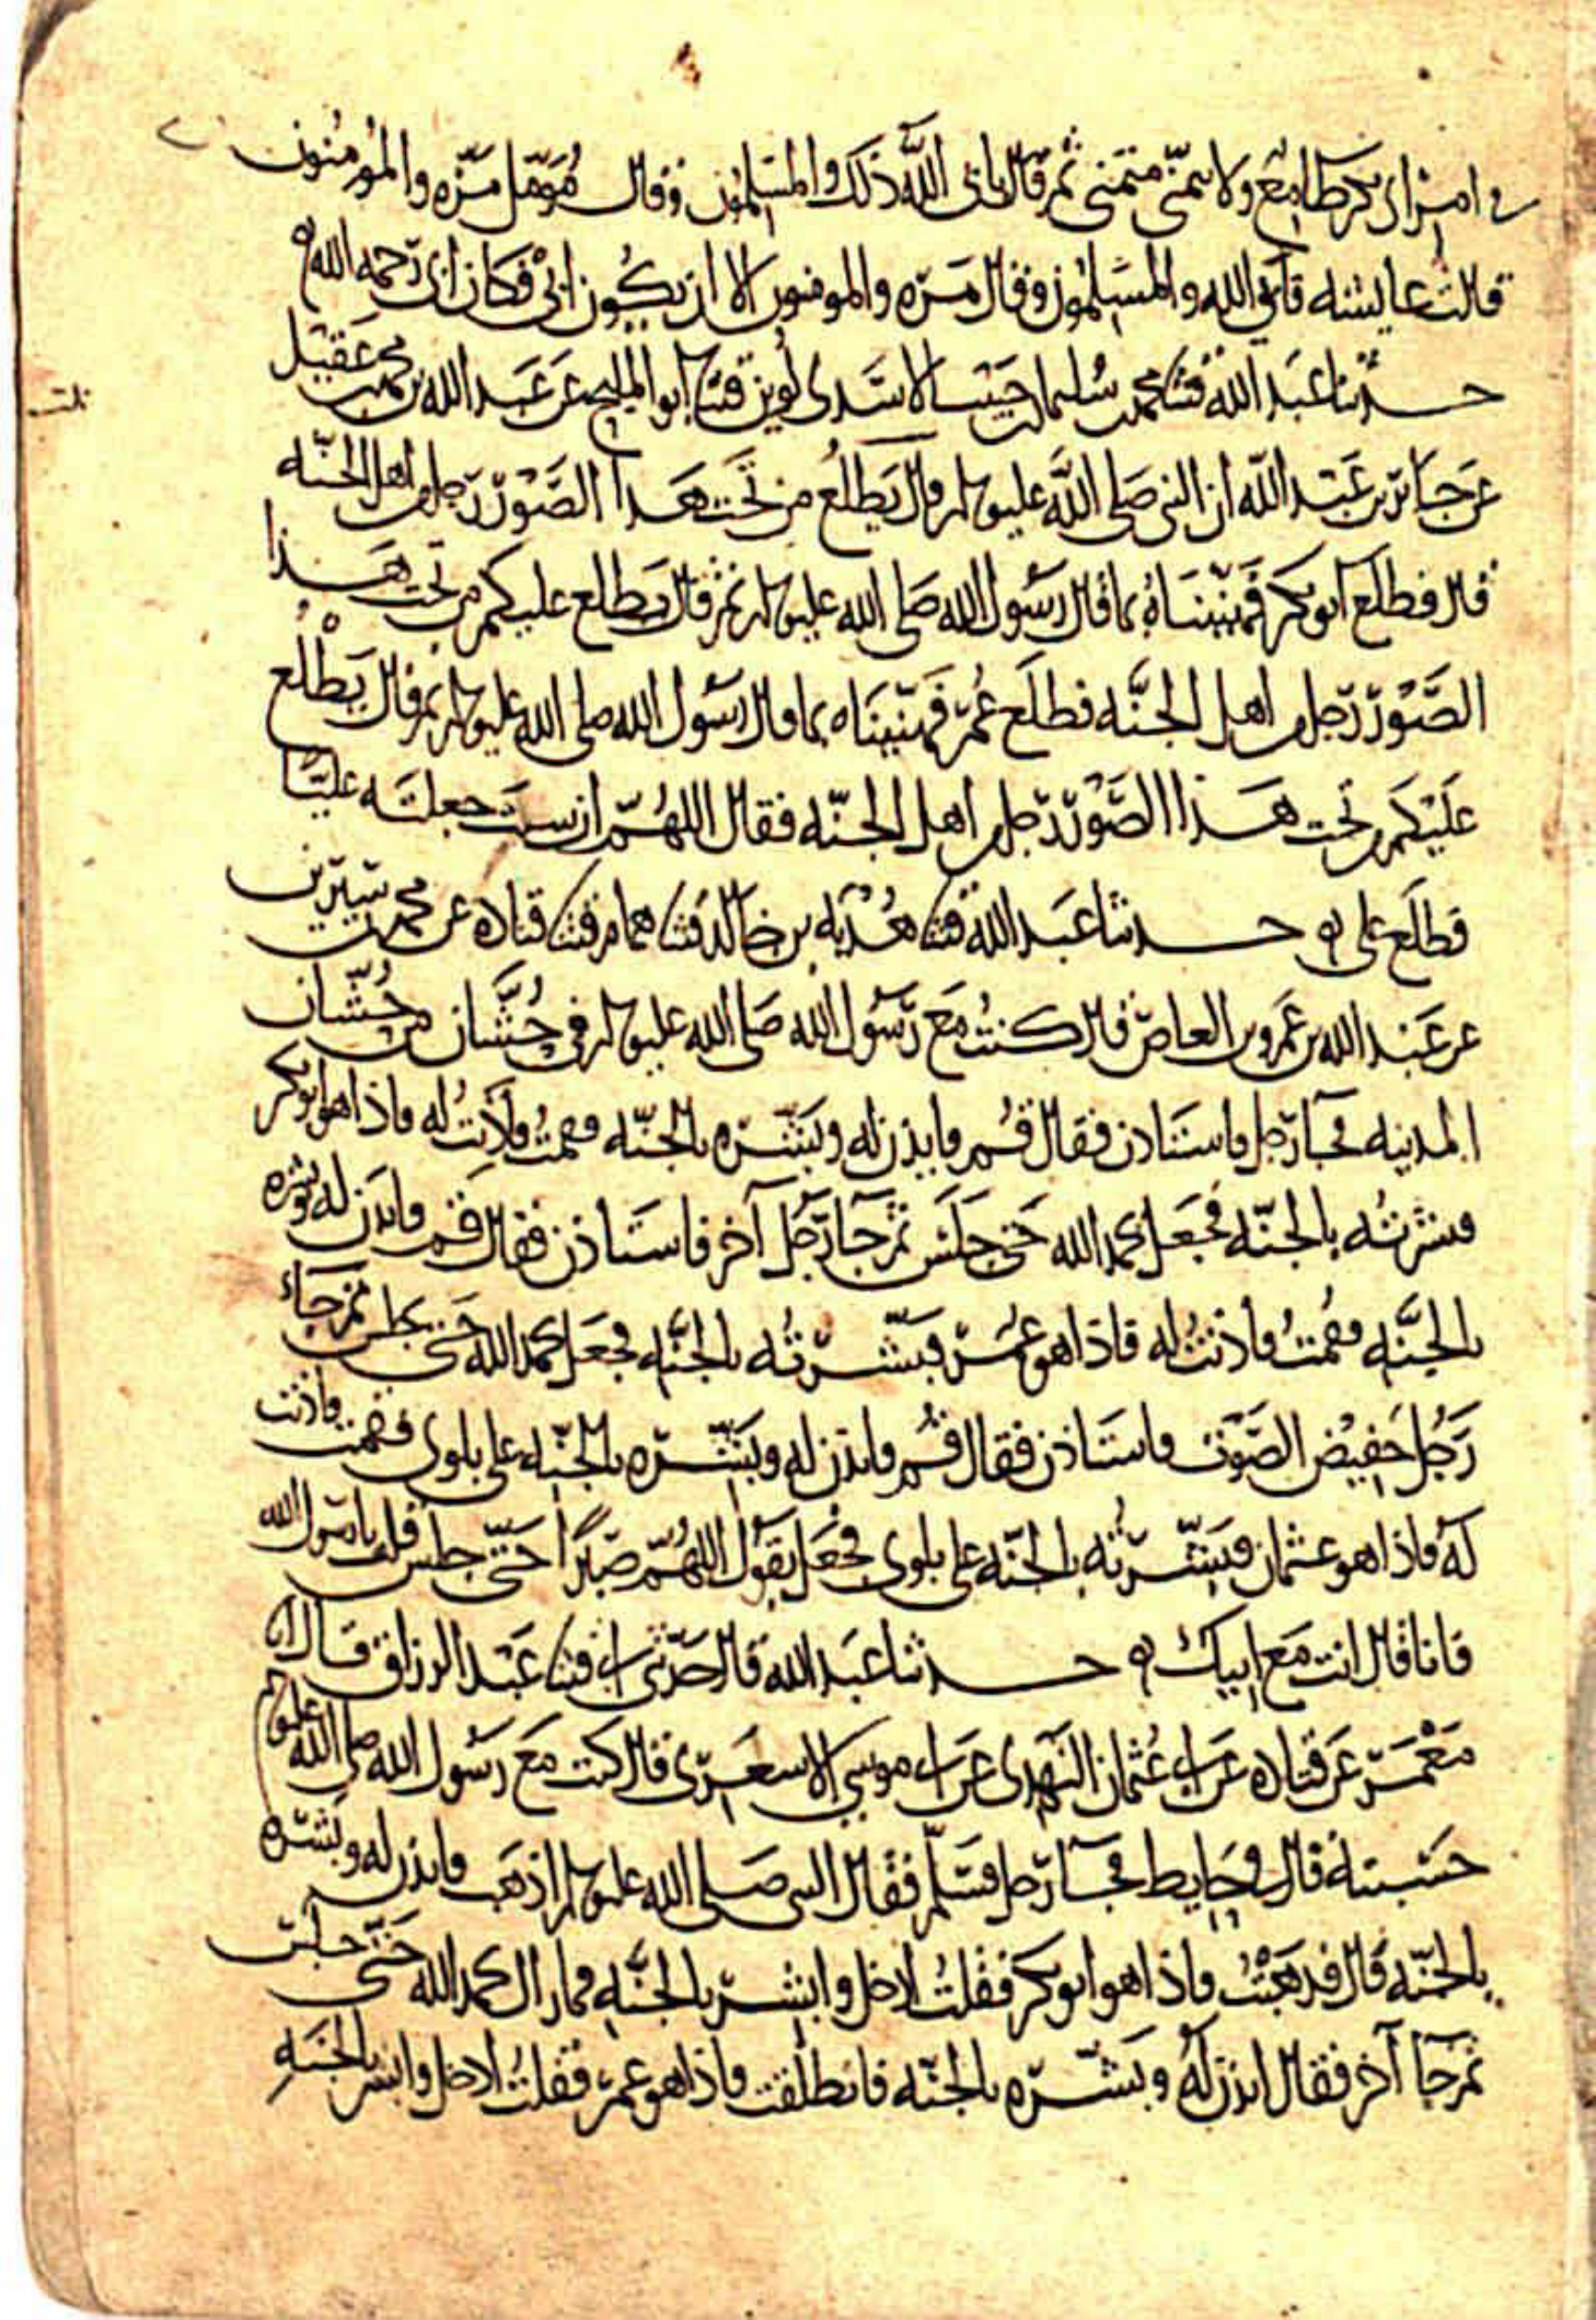 في امر ابى بكر طامع ولا يتمنى متمني ثم قال يابى الله ذلك والمسلمون وقال مُؤمّل مرّه والمؤمنون
قالت عايشه فابى الله والمسلمون وقال مَرّه والمومنون الا ان يكون ابى فكان ابى رحمه الله
حدثنا عبد الله قثنا محمد بن سليمان بن حبيب الاسدى لُوين قثنا ابو المليح عن عبد الله بن محمد بن عقيل
عن جابر بن عَبد الله ان النبى صَلى الله عليه وسلم قال يَطلعُ من تَحت هَذا الصّوْر رجل من اهل الجنّه
قال فطلع ابو بكر فهَنّيْنَاهُ بما قال رسُول الله صَلى الله عليه وسلم ثم قال يطلع عليكم من تحت هَذا
الصَّوْر رجل من اهل الجنَّه فطلَع عُمر فهَنّينَاه بما قال رسول الله صلى الله عليه وسلم ثم قال يَطْلع
عَلَيْكم من تحت هَذا الصَّوْر رجل من اهل الجنّه فقال اللهُمّ ان شئت جعلتَه عليّا
فطلَع على حدثنا عَبد الله قثنا هُدْبَه بن خالد قثنا همام قثنا قتاده عن محمد بن سيرين
عن عَبْد الله بن عَمرو بن العاص قال كنتُ مَعَ رسُول الله صَلى الله عليه وسلم في حُشَّان من حُشّان
المدينه فجا رجل فاستاذن فقال قُم فايذن له وبَشّره بالجنّه فقمتُ فاذنتُ له فاذا هو ابو بكر
فبشرتُه بالجنّه فجَعَل يحمد الله حَتى جلسَ ثم جا رَجُل آخر فاستاذن فقال قم فايذن له وبشره
بالجنَّه فقُمتُ فاذنتُ له فاذا هو عُمر فبَشّرتُه بالجنَّه فجعَل يحمد الله حَتى جلس ثم جاءَ
رَجُل خفيْض الصّوت فاستاذن فقال قُم فايذن له وبَشّره بالجنّه على بلوى فقمت فاذنت
لهُ فاذا هو عثمان فبَشّرتُه بالجنّه على بلوى فجَعَل يقولُ اللهُمّ صَبْرًا حَتّى جلس قلت يا رسول الله
فانا قال انت مَع ابيك حدثنا عبد الله قال حَدّثنى ابى قثنا عَبْد الرزاق قال انا
مَعْمَر عَن قتاده عن ابى عُثمان النَهدى عن ابى موسى الاشعَرى قال كنت مَعَ رسُول الله صلى الله عليه وسلم
حَسبتهُ قال فى حَايط فجا رجل فسَلّم فقال النبى صَلى الله عليه وسلم اذهَب فايذن له وبَشّره
بالجنّه قال فذهَبْتُ فاذا هو ابو بكر فقلتُ ادخل وابشر بالجنَّه فما زال يحمد الله حَتّى جلس
ثم جا آخر فقال ايذن لهُ وبَشّره بالجنّه فانطلقت فاذا هو عمر فقلتُ ادخل وابشر بالجنَّهِ